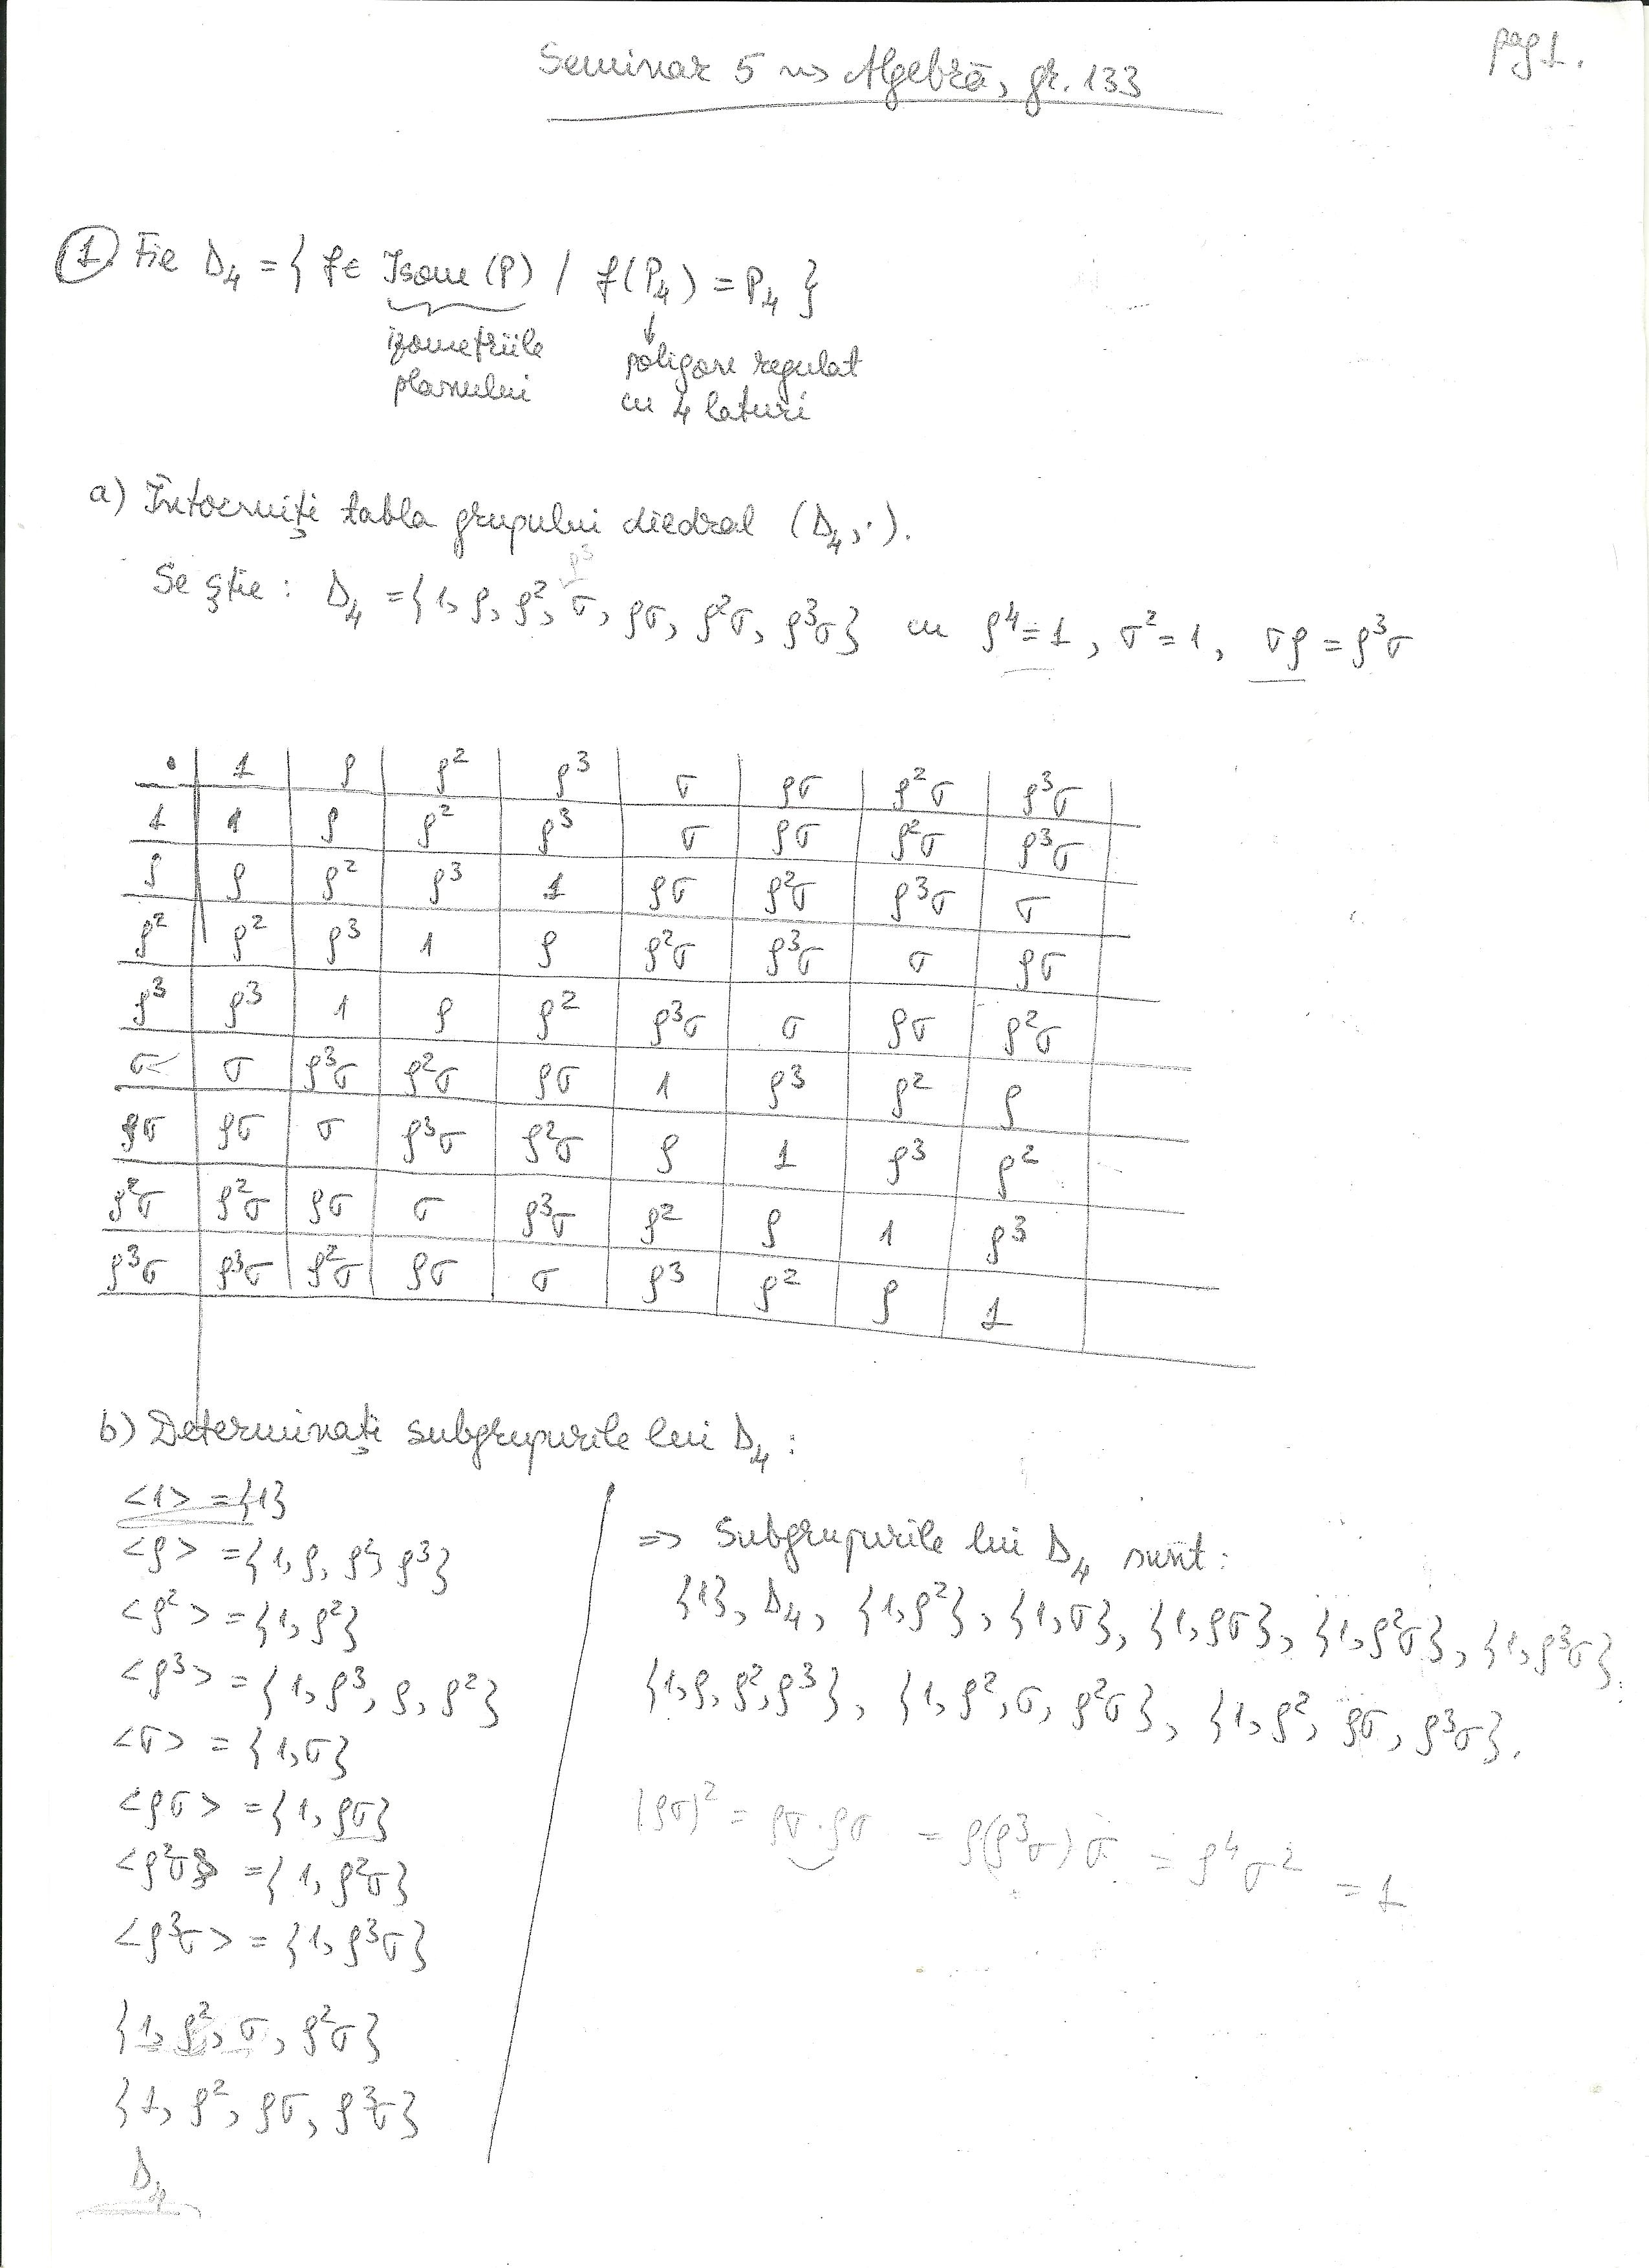 pag 1.
Seminar 5 ⇝ Algebră, gr. 133
① Fie D₄ = { f ∈ Isom (P) / f(P₄) = P₄ }
izometriile planului
↓
poligon regulat cu 4 laturi
a) Întocmiți tabla grupului diedral (D₄, ·).
ρ³
Se știe : D₄ = {1, ρ, ρ², σ, ρσ, ρ²σ, ρ³σ} cu ρ⁴ = 1, σ² = 1, σρ = ρ³σ
· | 1 | ρ | ρ² | ρ³ | σ | ρσ | ρ²σ | ρ³σ
1 | 1 | ρ | ρ² | ρ³ | σ | ρσ | ρ²σ | ρ³σ
ρ | ρ | ρ² | ρ³ | 1 | ρσ | ρ²σ | ρ³σ | σ
ρ² | ρ² | ρ³ | 1 | ρ | ρ²σ | ρ³σ | σ | ρσ
ρ³ | ρ³ | 1 | ρ | ρ² | ρ³σ | σ | ρσ | ρ²σ
σ | σ | ρ³σ | ρ²σ | ρσ | 1 | ρ³ | ρ² | ρ
ρσ | ρσ | σ | ρ³σ | ρ²σ | ρ | 1 | ρ³ | ρ²
ρ²σ | ρ²σ | ρσ | σ | ρ³σ | ρ² | ρ | 1 | ρ³
ρ³σ | ρ³σ | ρ²σ | ρσ | σ | ρ³ | ρ² | ρ | 1
b) Determinați subgrupurile lui D₄ :
<1> = {1}
<ρ> = {1, ρ, ρ², ρ³}
<ρ²> = {1, ρ²}
<ρ³> = {1, ρ³, ρ, ρ²}
<σ> = {1, σ}
<ρσ> = {1, ρσ}
<ρ²σ> = {1, ρ²σ}
<ρ³σ> = {1, ρ³σ}
{1, ρ², σ, ρ²σ}
{1, ρ², ρσ, ρ³σ}
D₄
=> Subgrupurile lui D₄ sunt :
{1}, D₄, {1, ρ²}, {1, σ}, {1, ρσ}, {1, ρ²σ}, {1, ρ³σ},
{1, ρ, ρ², ρ³}, {1, ρ², σ, ρ²σ}, {1, ρ², ρσ, ρ³σ}.
(ρσ)² = ρσ·ρσ = ρ(ρ³σ)σ = ρ⁴σ² = 1